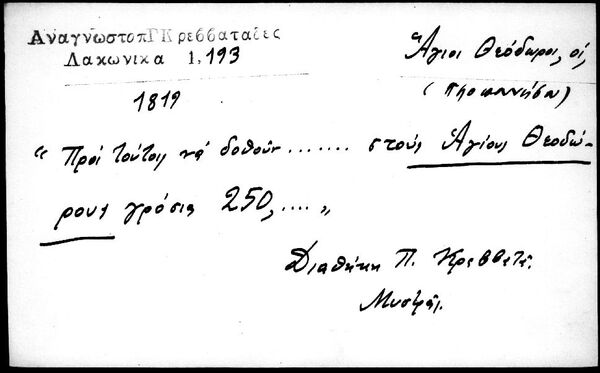 ΑναγνωστοπΓΚρεββαταίες
Λακωνικα 1,193
Ἅγιοι Θεόδωροι, οἱ,
1819
" Πρὸς τούτοις νά δοθοῦν ....... στούς Ἁγίους Θεοδώ-
ρους γρόσια 250,.... "
Διαθήκη Π. Κρεββατᾶ.
Μυστρᾶς.